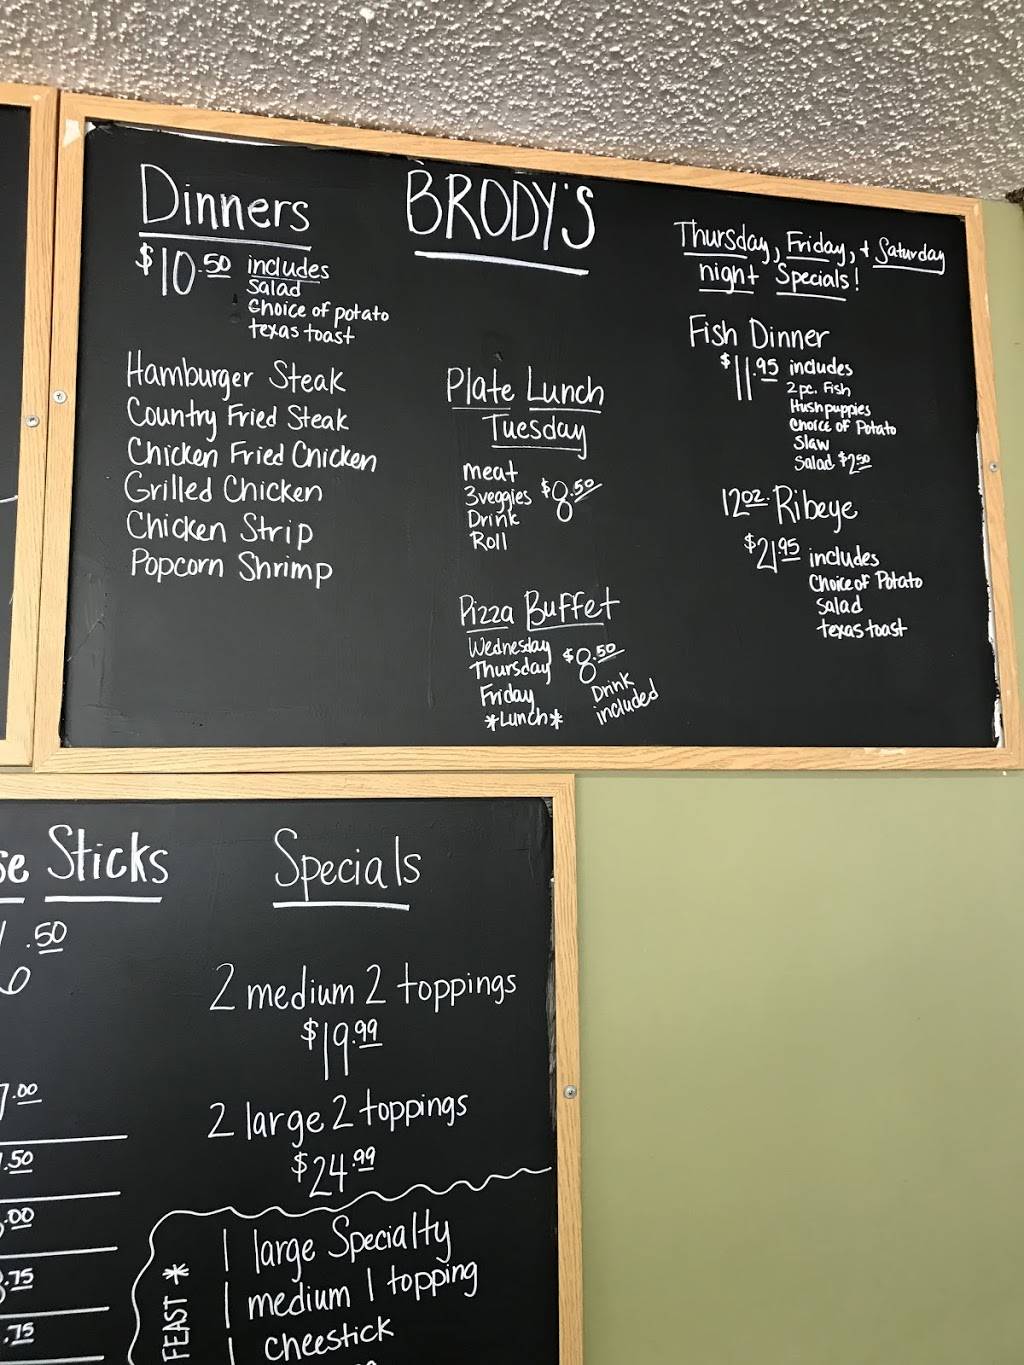 Dinners
$10.50 includes
Salad
Choice of potato
texas toast
Hamburger Steak
Country Fried Steak
Chicken Fried Chicken
Grilled Chicken
Chicken Strip
Popcorn Shrimp
BRODY'S
Plate Lunch
Tuesday
meat
3 veggies $8.50
Drink
Roll
Pizza Buffet
Wednesday
Thursday $8.50
Friday Drink
*Lunch* included
Thursday, Friday, + Saturday
night Specials!
Fish Dinner
$11.95 includes
2 pc. Fish
Hushpuppies
Choice of Potato
Slaw
Salad $2.50
12 oz. Ribeye
$21.95 includes
Choice of Potato
Salad
texas toast
Sticks
.50
.00
.50
.00
.75
.75
Specials
2 medium 2 toppings
$19.99
2 large 2 toppings
$24.99
FEAST *
1 large Specialty
1 medium 1 topping
1 cheestick